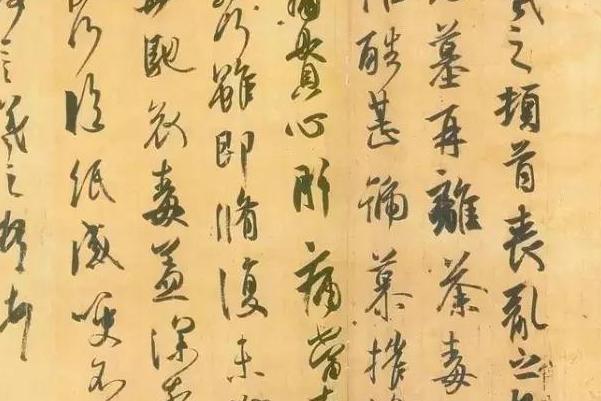 羲之頓首喪亂之
墓再離荼毒
惟酷甚號慕摧
痛貫心肝痛當
何雖即脩復未
奔馳哀毒益深奈
何臨紙感哽不
言羲之頓首